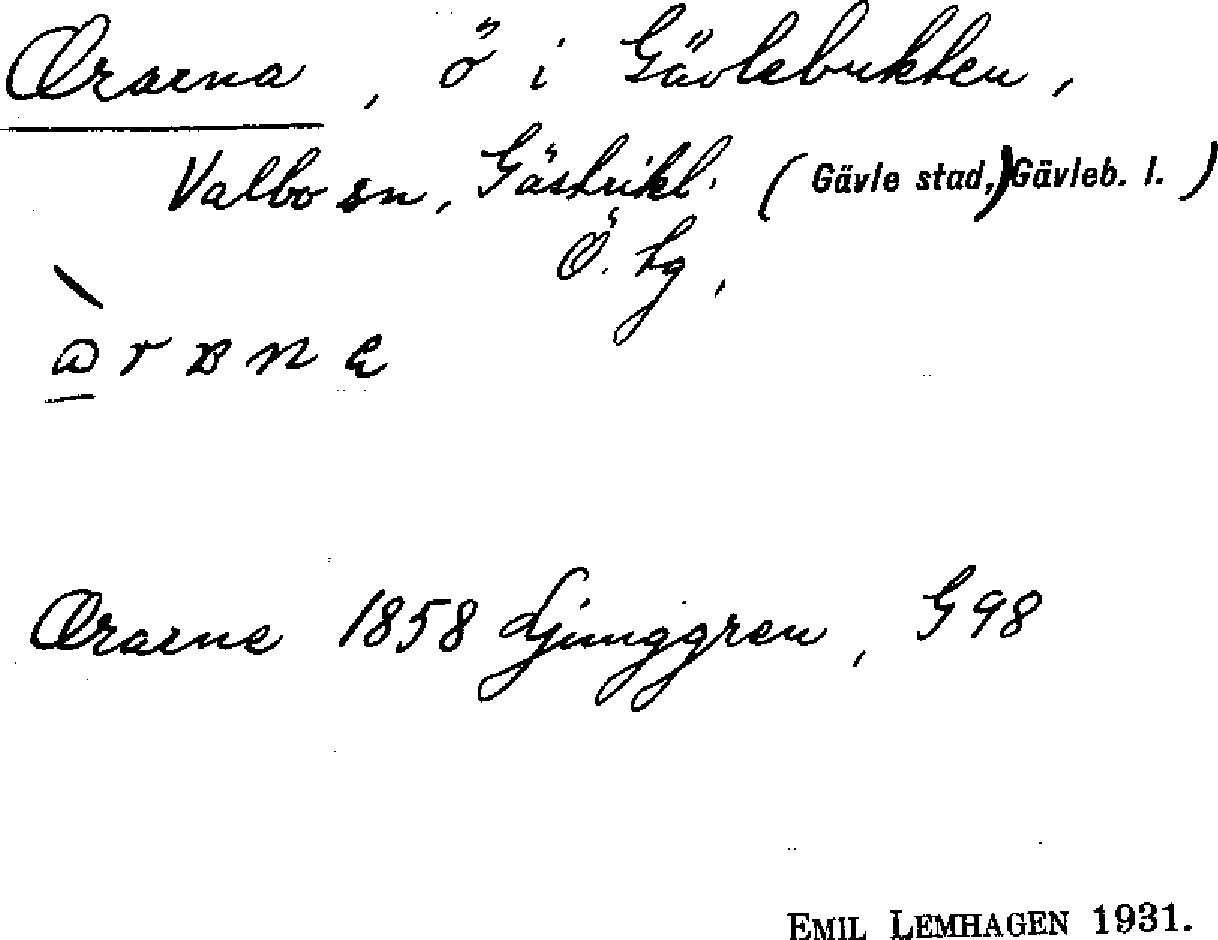 Orarna, ö i Gävlebukten,
Valbo sn, Gästrikl. (Gävle stad,) Gävleb. l. )
Ö. tg.
Orarne 1858 Ljunggren, G98
EMIL LEMHAGEN 1931.